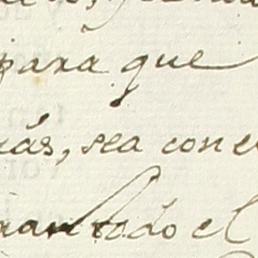 para que
rás, sea con e
todo el